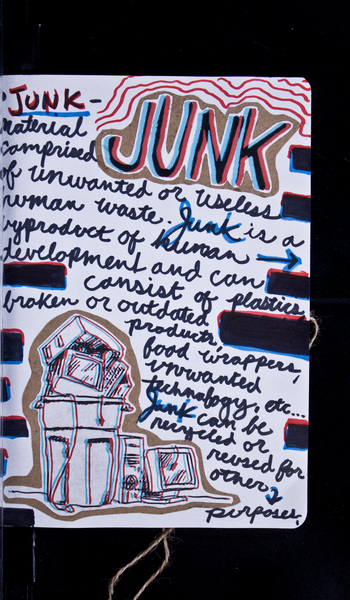 JUNK -
JUNK
material
comprised
of unwanted or useless
human waste. Junk is a
byproduct of human
development and can
consist of plastics,
broken or outdated
products,
food wrappers,
unwanted
technology, etc...
Junk can be
recycled or
reused for
other
purposes.